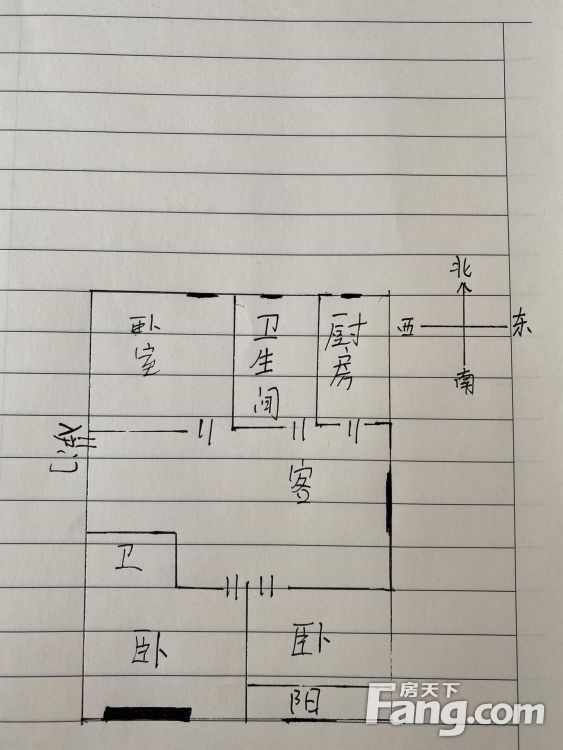 北
西
东
南
卧室
卫生间
厨房
客
卫
卧
卧
阳
房天下
Fang.com